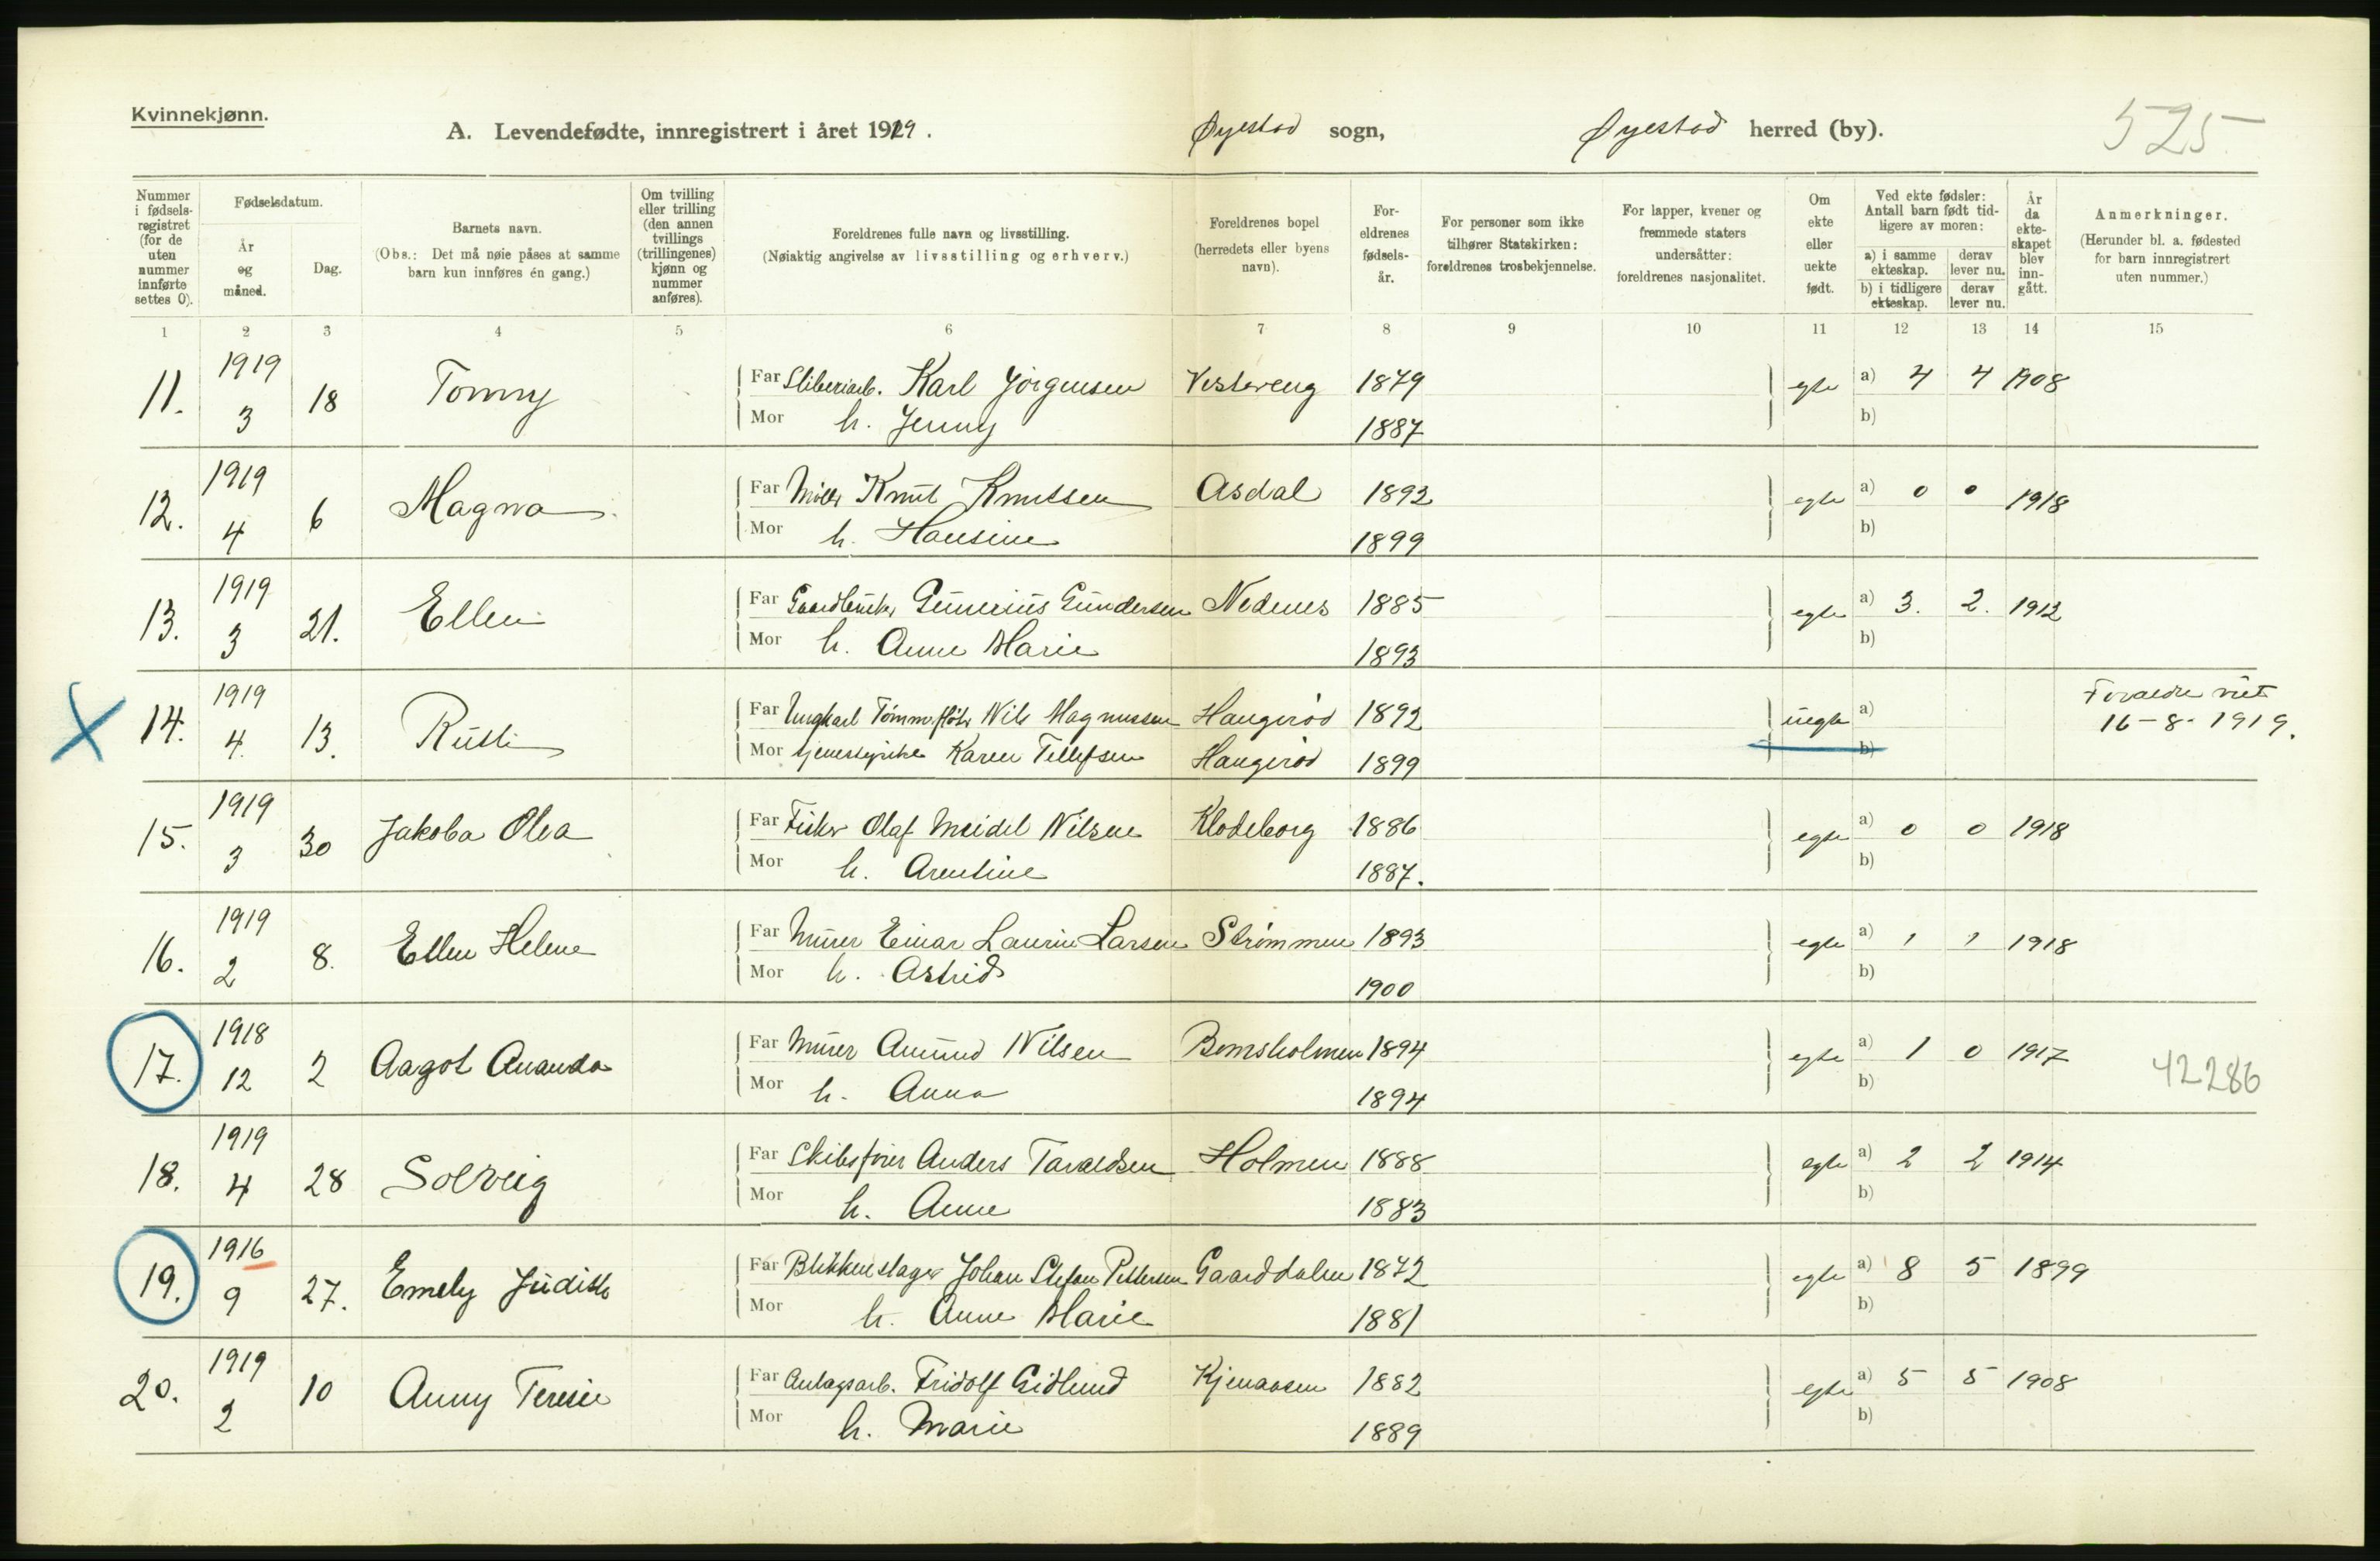 Kvinnekjønn.
A. Levendefødte, innregistrert i året 1919. Øyestad sogn, Øyestad herred (by). 525
Nummer i fødselsregistret (for de uten nummer innførte settes 0).
Fødselsdatum.
År og måned.
Dag.
Barnets navn.
(Obs.: Det må nøie påses at samme barn kun innføres én gang.)
Om tvilling eller trilling (den annen tvillings (trillingenes) kjønn og nummer anføres).
Foreldrenes fulle navn og livsstilling.
(Nøiaktig angivelse av livsstilling og erhverv.)
Foreldrenes bopel (herredets eller byens navn).
Foreldrenes fødselsår.
For personer som ikke tilhører Statskirken: foreldrenes trosbekjennelse.
For lapper, kvener og fremmede staters undersåtter: foreldrenes nasjonalitet.
Om ekte eller uekte født.
Ved ekte fødsler: Antall barn født tidligere av moren:
a) i samme ekteskap. derav lever nu.
b) i tidligere ekteskap. derav lever nu.
År da ekteskapet blev inngått.
Anmerkninger.
(Herunder bl. a. fødested for barn innregistrert uten nummer.)
1 2 3 4 5 6 7 8 9 10 11 12 13 14 15
11. 1919 3 18 Tonny Far Sliberiarb. Karl Jørgensen Vestereng 1879 egte a) 4 4 1908
Mor h. Jenny 1887 b)
12. 1919 4 6 Magna Far Knut Knutsen Asdal 1892 egte a) 0 0 1918
Mor h. Hansine 1899 b)
13. 1919 3 21. Ellen Far Gaardbruker Gunerius Gundersen Nedenes 1885 egte a) 3. 2. 1912
Mor h. Anne Marie 1893 b)
14. 1919 4. 13. Ruth Far Ungkarl Tømmerfløter Nils Magnussen Haugerød 1892 uegte a) Forældre viet
16-8-1919.
Mor tjenestepike Karen Tellefsen Haugerød 1899 b)
15. 1919 3 30 Jakoba Olea Far Fisker Olaf Meidel Nilsen Klodeborg 1886 egte a) 0 0 1918
Mor h. Arentine 1887. b)
16. 1919 2 8. Ellen Helene Far Murer Einar Laurin Larsen Strømmen 1893 egte a) 1 1 1918
Mor h. Astrid 1900 b)
17. 1918 12 2 Aagot Ananda Far Murer Amund Nilsen Bomsholmen 1894 egte a) 1 0 1917 42286
Mor h. Anna 1894 b)
18. 1919 4 28 Solveig Far Skibsfører Anders Taraldsen Holmen 1888 egte a) 2 2 1914
Mor h. Anne 1883 b)
19. 1916 9 27. Emely Judith Far Blikkenslager Johan Stefan Pettersen Gaarddalen 1872 egte a) 8 5 1899
Mor h. Anne Marie 1881 b)
20. 1919 2 10 Anny Teresie Far Anlagsarb. Fridolf Eidlund 1882 egte a) 5 5 1908
Mor h. Marie 1889 b)